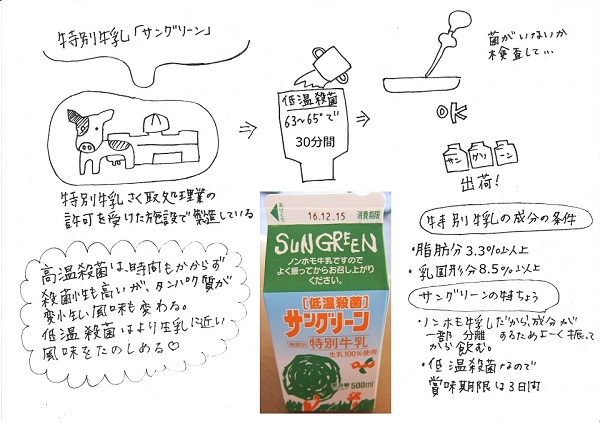 特別牛乳「サングリーン」
特別牛乳さく取処理業の
許可を受けた施設で製造している
低温殺菌
63~65°で
30分間
菌がいないか
検査して…
OK
サン グリ ーン
出荷!
高温殺菌は、時間もかからず
殺菌性も高いが、タンパク質が
変性し風味も変わる。
低温殺菌はより生乳に近い
風味をたのしめる♡
あけくち
16.12.15 消費期限
SUNGREEN
ノンホモ牛乳ですので
よく振ってからお召し上がり
ください。
[低温殺菌]
サングリーン
種類別 特別牛乳
生乳100%使用
500ml
特別牛乳の成分の条件
・脂肪分3.3%以上
・乳固形分8.5%以上
サングリーンの特ちょう
・ノンホモ牛乳だから、成分が
一部分離するためよーく振って
から飲む。
・低温殺菌なので
賞味期限は3日間